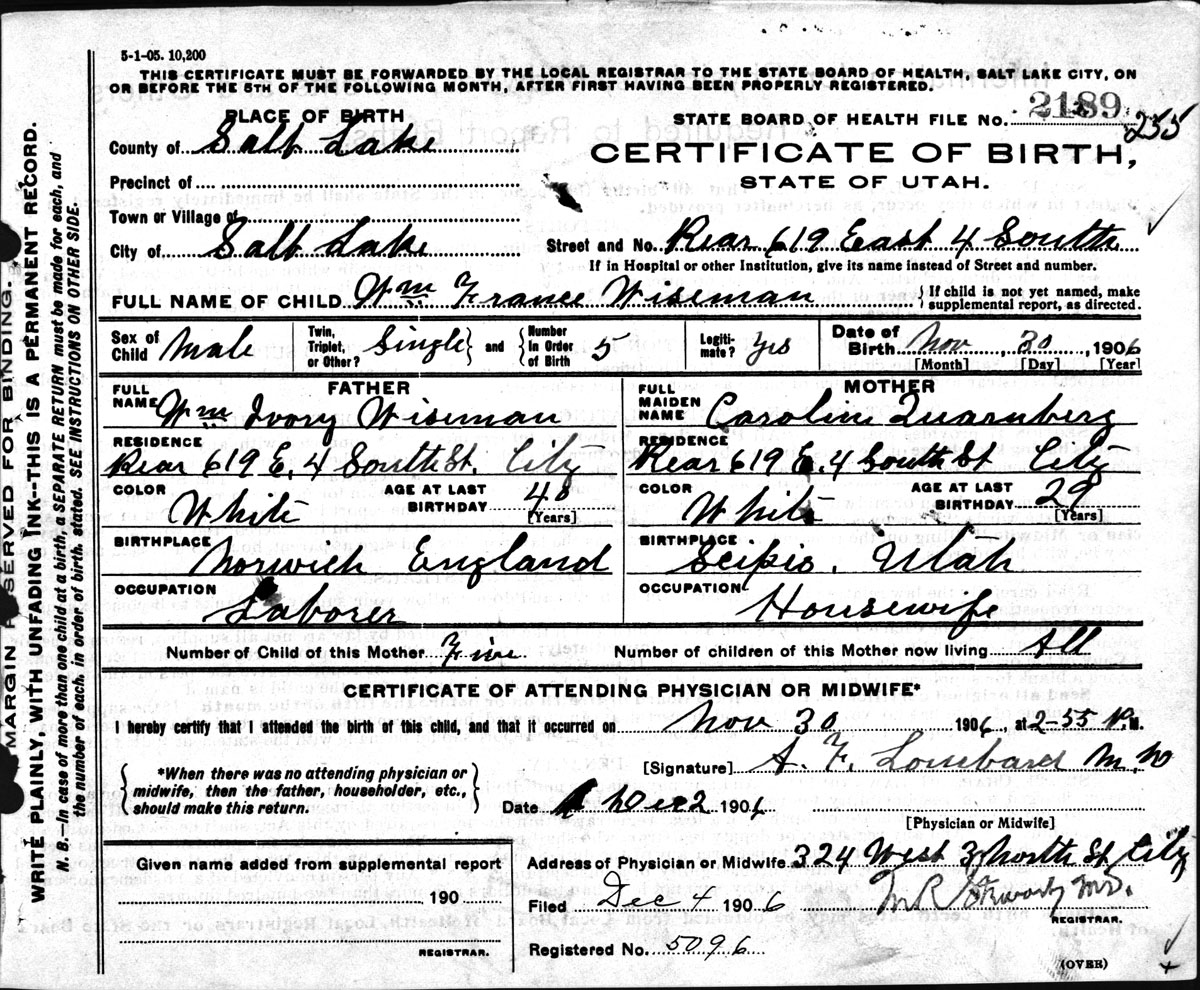 5-1-05. 10,200
THIS CERTIFICATE MUST BE FORWARDED BY THE LOCAL REGISTRAR TO THE STATE BOARD OF HEALTH, SALT LAKE CITY, ON
OR BEFORE THE 5TH OF THE FOLLOWING MONTH, AFTER FIRST HAVING BEEN PROPERLY REGISTERED.
PLACE OF BIRTH
STATE BOARD OF HEALTH FILE NO. 2189 255
County of Salt Lake
CERTIFICATE OF BIRTH,
STATE OF UTAH.
Precinct of
Town or Village of
City of Salt Lake Street and No. Rear 619 East 4 South
If in Hospital or other Institution, give its name instead of Street and number.
FULL NAME OF CHILD Wm France Wiseman {If child is not yet named, make supplemental report, as directed.
Sex of Child Male Twin, Triplet, or Other? Single} and {Number in Order of Birth 5 Legiti-mate? Yes Date of Birth Nov, 30, 1906
[Month] [Day] [Year]
FATHER
FULL NAME Wm Ivory Wiseman
RESIDENCE
Rear 619 E. 4 South St. City
COLOR White AGE AT LAST BIRTHDAY 40 [Years]
BIRTHPLACE Norwich England
OCCUPATION Laborer
MOTHER
FULL MAIDEN NAME Carolin Quarnberg
RESIDENCE
Rear 619 E. 4 South St City
COLOR White AGE AT LAST BIRTHDAY 29 [Years]
BIRTHPLACE Scipio, Utah
OCCUPATION Housewife
Number of Child of this Mother Five Number of children of this Mother now living All
CERTIFICATE OF ATTENDING PHYSICIAN OR MIDWIFE*
I hereby certify that I attended the birth of this child, and that it occurred on Nov 30 1906, at 2-55 P.M.
[Signature] A. F. Lombard M.D
{*When there was no attending physician or midwife, then the father, householder, etc., should make this return.}
Date Dec 2 1906
[Physician or Midwife]
Given name added from supplemental report
190
REGISTRAR.
Address of Physician or Midwife 324 West 3 North St City
Filed Dec 4 1906 M.D.
REGISTRAR.
Registered No. 5096
(OVER)
MARGIN RESERVED FOR BINDING.
WRITE PLAINLY, WITH UNFADING INK--THIS IS A PERMANENT RECORD.
N. B.—In case of more than one child at a birth, a SEPARATE RETURN must be made for each, and
the number of each, in order of birth, stated. SEE INSTRUCTIONS ON OTHER SIDE.